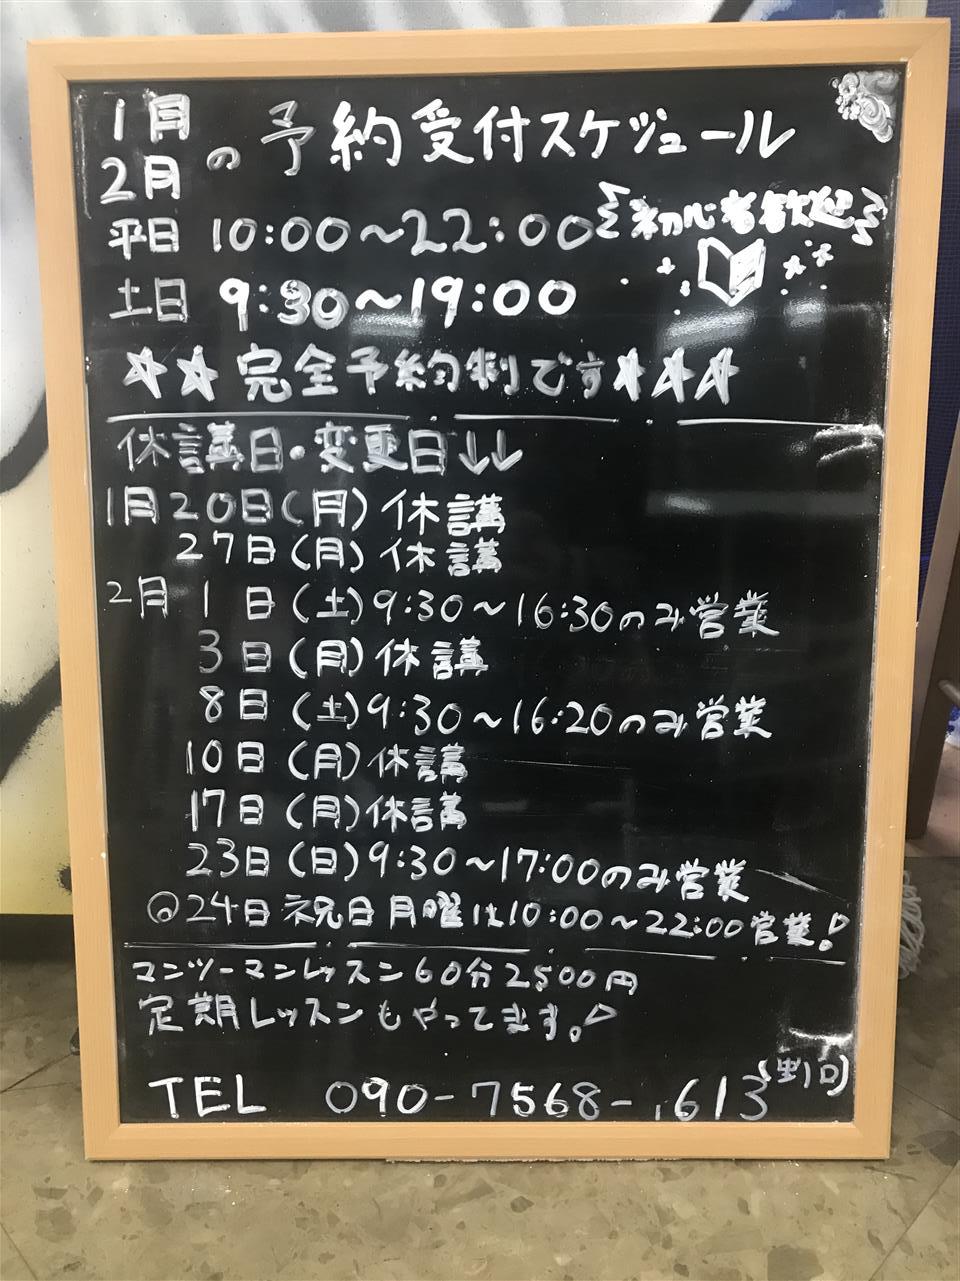 1月
2月
の予約受付スケジュール
平日 10:00〜22:00
初心者歓迎
土日 9:30〜19:00
★★完全予約制です★★★
休講日・変更日↓↓
1月20日(月)休講
27日(月)休講
2月 1日(土)9:30〜16:30のみ営業
3日(月)休講
8日(土)9:30〜16:20のみ営業
10日(月)休講
17日(月)休講
23日(日)9:30〜17:00のみ営業
◎24日祝日月曜は10:00〜22:00営業!
マンツーマンレッスン60分2500円
定期レッスンもやってます。
TEL 090-7568-1613